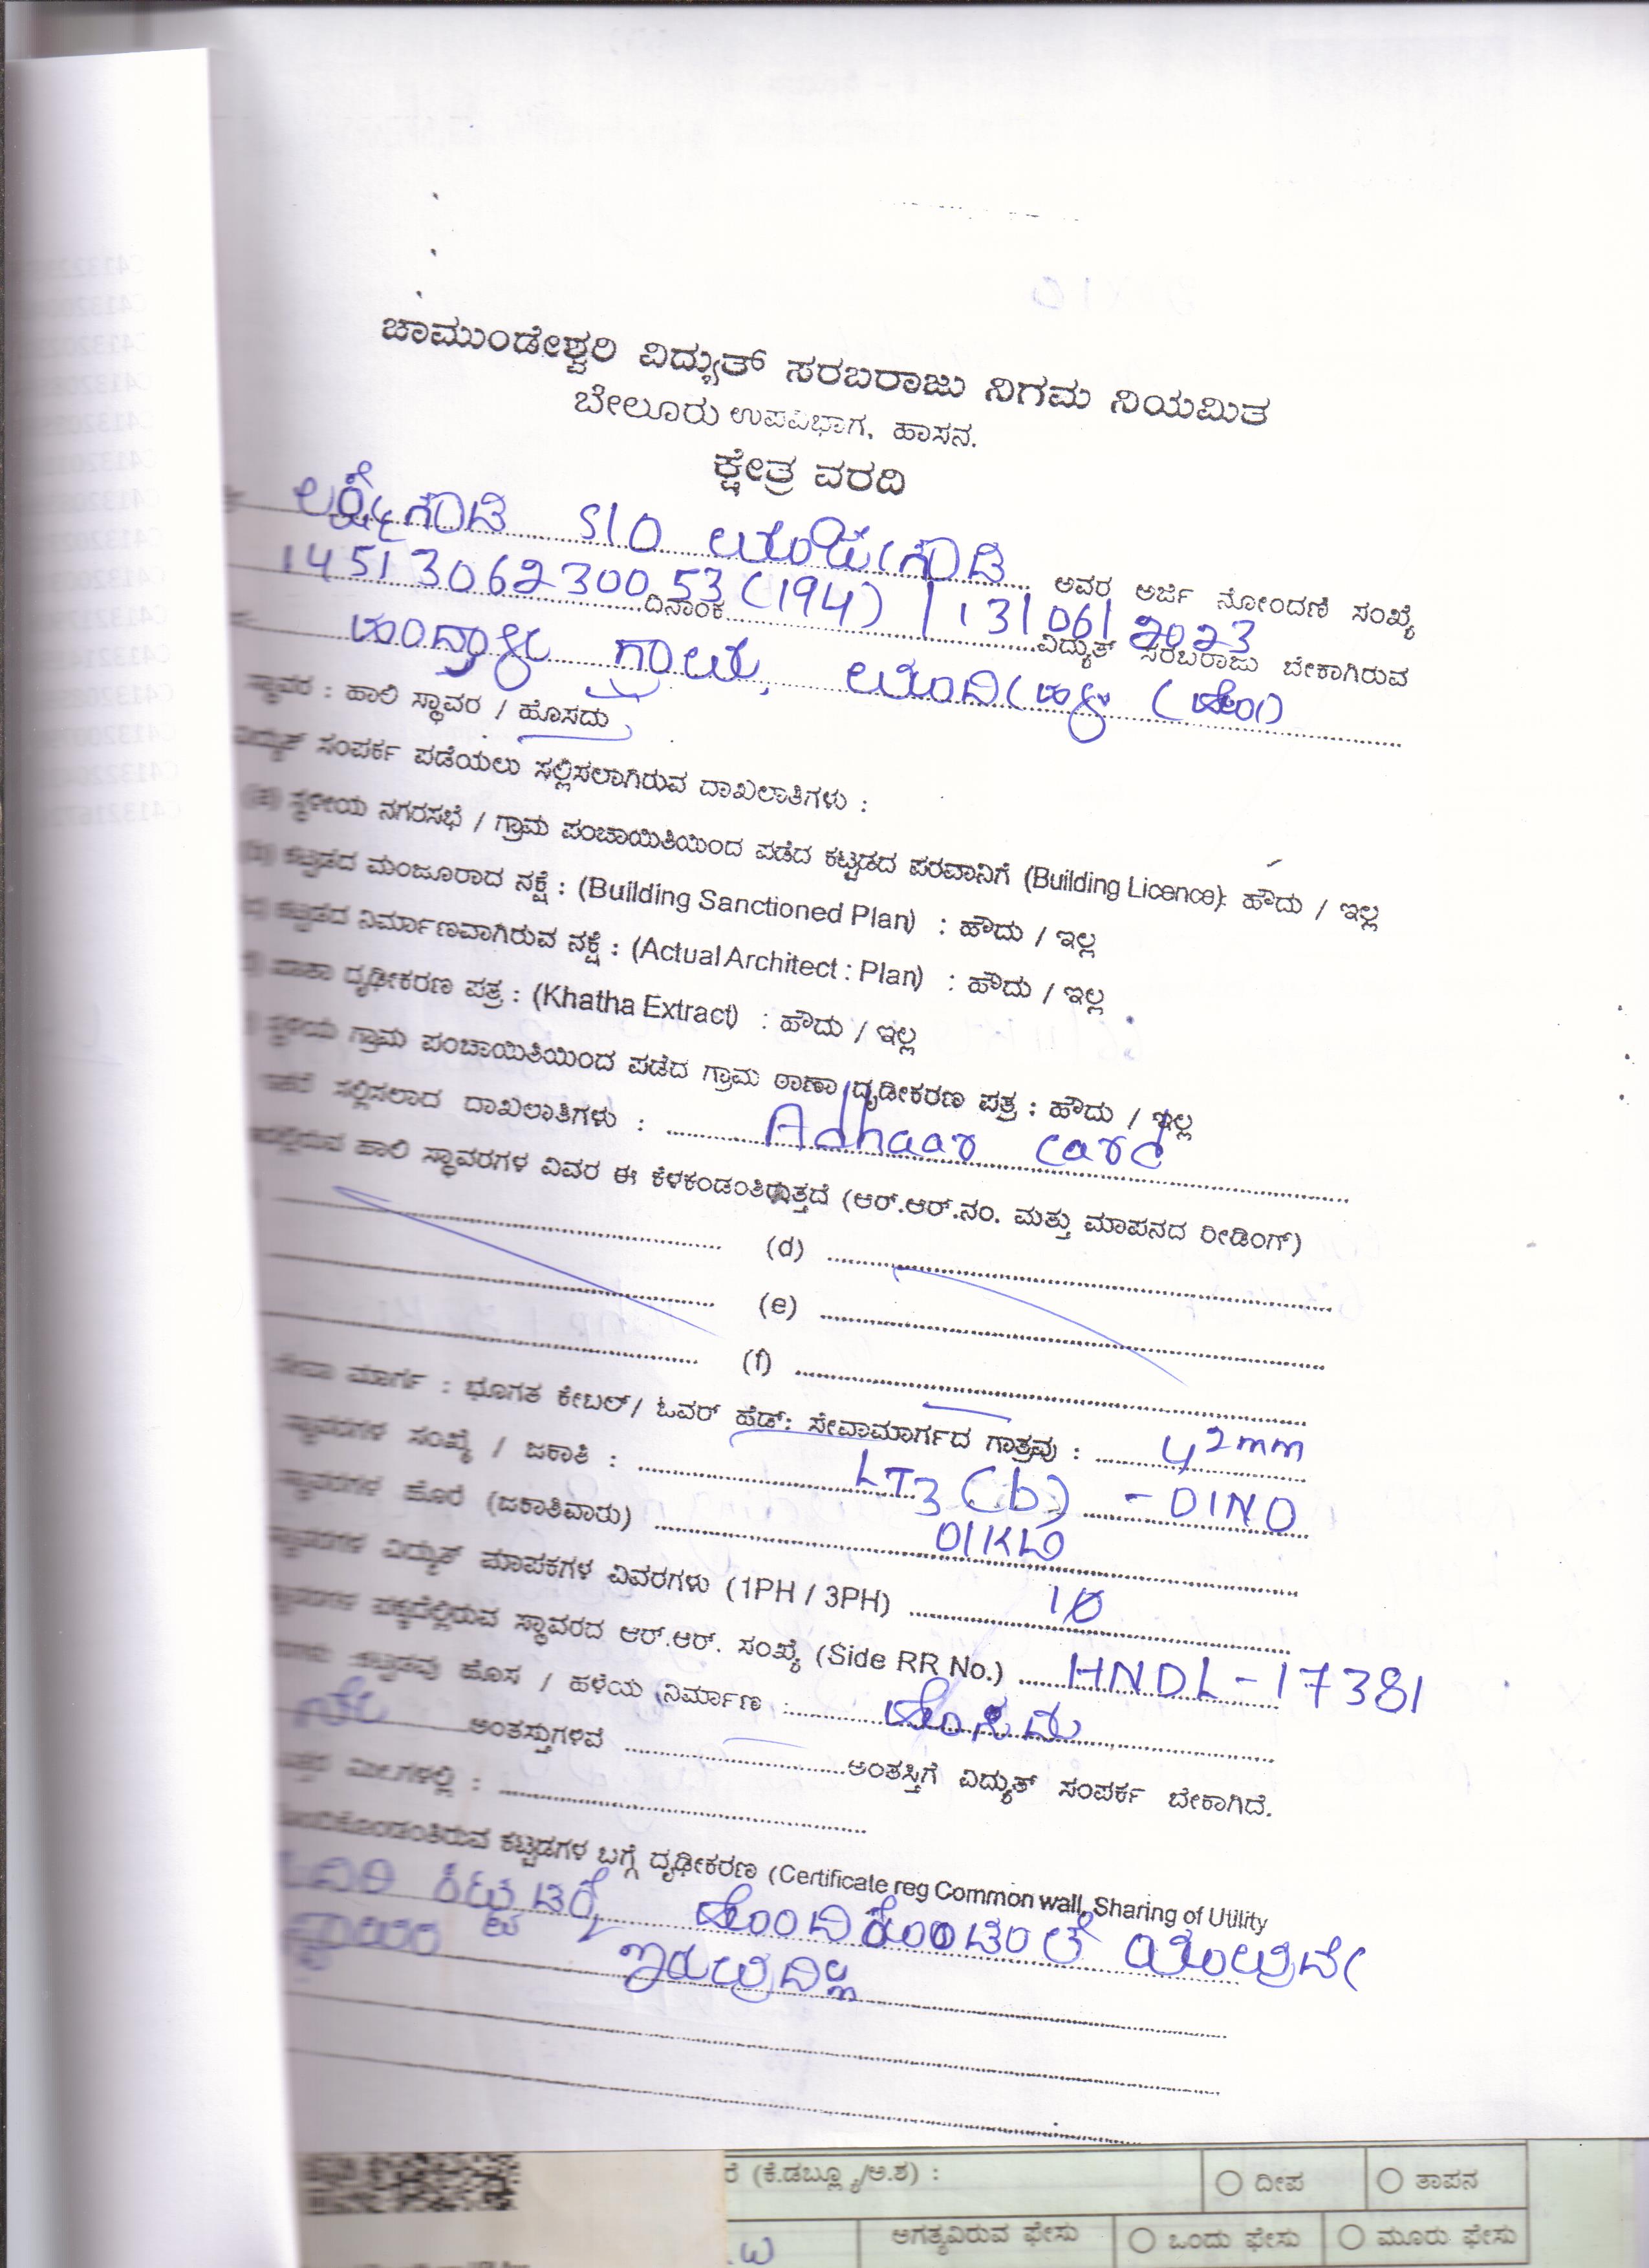 ಚಾಮುಂಡೇಶ್ವರಿ ವಿದ್ಯುತ್ ಸರಬರಾಜು ನಿಗಮ ನಿಯಮಿತ
ಬೇಲೂರು ಉಪವಿಭಾಗ, ಹಾಸನ.
ಕ್ಷೇತ್ರ ವರದಿ
S/O ಅವರ ಅರ್ಜಿ ನೋಂದಣಿ ಸಂಖ್ಯೆ
145130623 00 53 (194) ದಿನಾಂಕ 13/06/2023 ವಿದ್ಯುತ್ ಸರಬರಾಜು ಬೇಕಾಗಿರುವ
ಗ್ರಾಮ, (ಹೋ)
ಸ್ಥಾವರ : ಹಾಲಿ ಸ್ಥಾವರ / ಹೊಸದು
ವಿದ್ಯುತ್ ಸಂಪರ್ಕ ಪಡೆಯಲು ಸಲ್ಲಿಸಲಾಗಿರುವ ದಾಖಲಾತಿಗಳು :
(a) ಸ್ಥಳೀಯ ನಗರಸಭೆ / ಗ್ರಾಮ ಪಂಚಾಯಿತಿಯಿಂದ ಪಡೆದ ಕಟ್ಟಡದ ಪರವಾನಿಗೆ (Building Licence): ಹೌದು / ಇಲ್ಲ
(b) ಕಟ್ಟಡದ ಮಂಜೂರಾದ ನಕ್ಷೆ : (Building Sanctioned Plan) : ಹೌದು / ಇಲ್ಲ
(c) ಕಟ್ಟಡದ ನಿರ್ಮಾಣವಾಗಿರುವ ನಕ್ಷೆ : (Actual Architect : Plan) : ಹೌದು / ಇಲ್ಲ
ದೃಢೀಕರಣ ಪತ್ರ : (Khatha Extract) : ಹೌದು / ಇಲ್ಲ
ಸ್ಥಳೀಯ ಗ್ರಾಮ ಪಂಚಾಯಿತಿಯಿಂದ ಪಡೆದ ಗ್ರಾಮ ಠಾಣಾ ದೃಢೀಕರಣ ಪತ್ರ : ಹೌದು / ಇಲ್ಲ
ಇತರೆ ಸಲ್ಲಿಸಲಾದ ದಾಖಲಾತಿಗಳು : Adhaar card
ಹಾಲಿ ಸ್ಥಾವರಗಳ ವಿವರ ಈ ಕೆಳಕಂಡಂತಿರುತ್ತದೆ (ಆರ್.ಆರ್.ನಂ. ಮತ್ತು ಮಾಪನದ ರೀಡಿಂಗ್)
(d)
(e)
(f)
ಸೇವಾ ಮಾರ್ಗ : ಭೂಗತ ಕೇಬಲ್/ ಓವರ್ ಹೆಡ್: ಸೇವಾಮಾರ್ಗದ ಗಾತ್ರವು : 4 2mm
ಸ್ಥಾವರಗಳ ಸಂಖ್ಯೆ / ಜಕಾತಿ : LT3 (b) - 01NO
ಸ್ಥಾವರಗಳ ಹೊರೆ (ಜಕಾತಿವಾರು) 01KW
ಸ್ಥಾವರಗಳ ವಿದ್ಯುತ್ ಮಾಪಕಗಳ ವಿವರಗಳು (1PH / 3PH) 1Ø
ಸ್ಥಾವರದ ಆರ್.ಆರ್. ಸಂಖ್ಯೆ (Side RR No.) HNDL-17381
ಕಟ್ಟಡವು ಹೊಸ / ಹಳೆಯ ನಿರ್ಮಾಣ : ಹೊಸದು
ನೆಲ ಅಂತಸ್ತುಗಳಿವೆ ಅಂತಸ್ತಿಗೆ ವಿದ್ಯುತ್ ಸಂಪರ್ಕ ಬೇಕಾಗಿದೆ.
ಮೀ.ಗಳಲ್ಲಿ :
ಹೊಂದಿಕೊಂಡಂತಿರುವ ಕಟ್ಟಡಗಳ ಬಗ್ಗೆ ದೃಢೀಕರಣ (Certificate reg Common wall, Sharing of Utility
ಸದರಿ ಕಟ್ಟಡಕ್ಕೆ ಹೊಂದಿಕೊಂಡಂತೆ ಯಾವುದೇ
ಸ್ಥಾವರ ಇರುವುದಿಲ್ಲ
(ಕೆ.ಡಬ್ಲ್ಯೂ/ಅ.ಶ) : ದೀಪ ತಾಪನ
ಅಗತ್ಯವಿರುವ ಫೇಸು ಒಂದು ಫೇಸು ಮೂರು ಫೇಸು